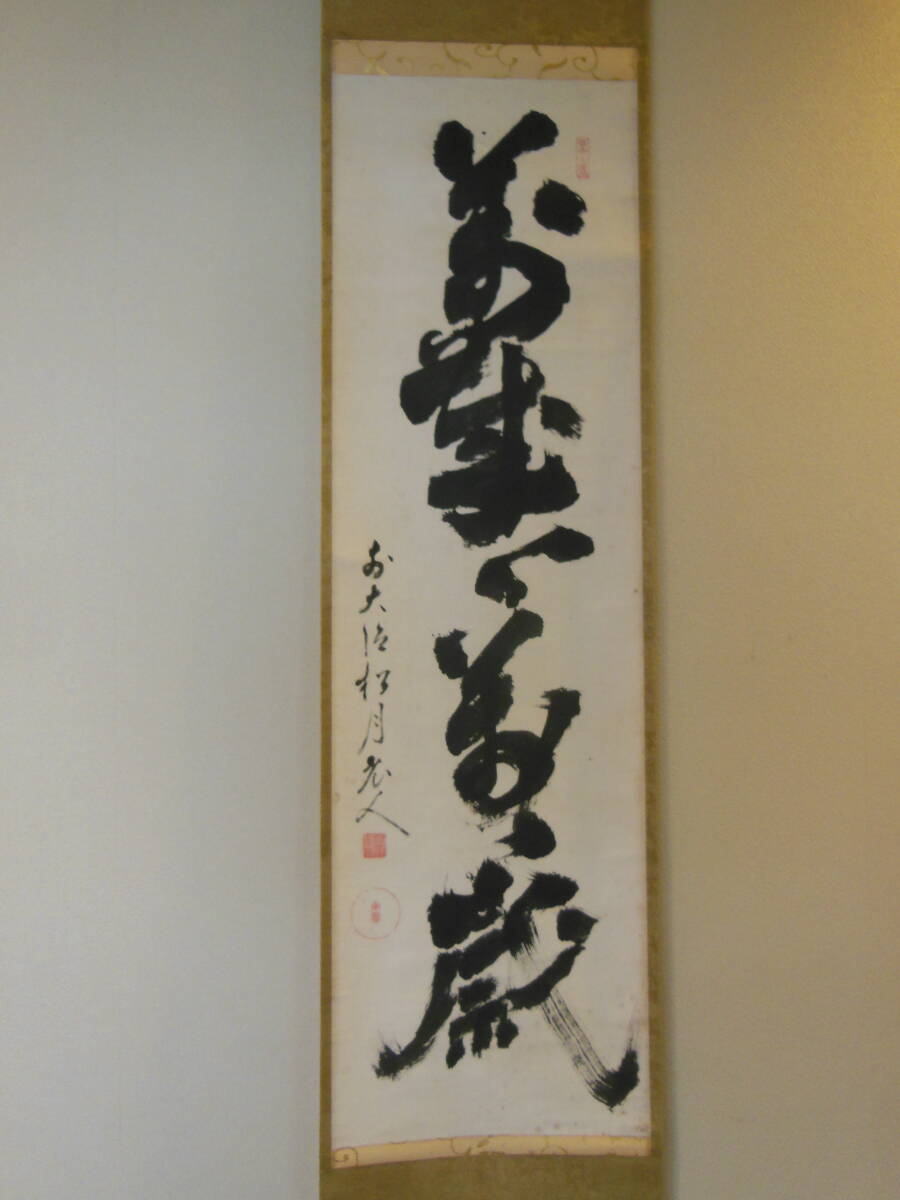 萬歳々萬々歳
前大徳松月老人